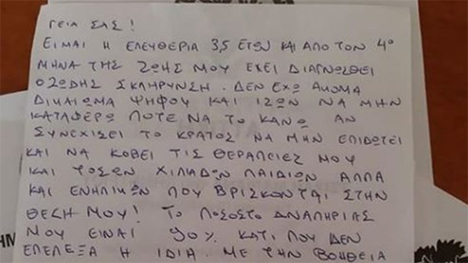 ΓΕΙΑ ΣΑΣ!
ΕΙΜΑΙ Η ΕΛΕΥΘΕΡΙΑ 3,5 ΕΤΩΝ ΚΑΙ ΑΠΟ ΤΟΝ 4ο
ΜΗΝΑ ΤΗΣ ΖΩΗΣ ΜΟΥ ΕΧΕΙ ΔΙΑΓΝΩΣΘΕΙ
ΟΖΩΔΗΣ ΣΚΛΗΡΥΝΣΗ. ΔΕΝ ΕΧΩ ΑΚΟΜΑ
ΔΙΚΑΙΩΜΑ ΨΗΦΟΥ ΚΑΙ ΙΣΩΣ ΝΑ ΜΗΝ
ΚΑΤΑΦΕΡΩ ΠΟΤΕ ΝΑ ΤΟ ΚΑΝΩ ΑΝ
ΣΥΝΕΧΙΣΕΙ ΤΟ ΚΡΑΤΟΣ ΝΑ ΜΗΝ ΕΠΙΔΟΤΕΙ
ΚΑΙ ΝΑ ΚΟΒΕΙ ΤΙΣ ΘΕΡΑΠΕΙΕΣ ΜΟΥ
ΚΑΙ ΤΟΣΩΝ ΧΙΛΙΑΔΩΝ ΠΑΙΔΙΩΝ ΑΛΛΑ
ΚΑΙ ΕΝΗΛΙΚΩΝ ΠΟΥ ΒΡΙΣΚΟΝΤΑΙ ΣΤΗΝ
ΘΕΣΗ ΜΟΥ! ΤΟ ΠΟΣΟΣΤΟ ΑΝΑΠΗΡΙΑΣ
ΜΟΥ ΕΙΝΑΙ 90% ΚΑΤΙ ΠΟΥ ΔΕΝ
ΕΠΕΛΕΞΑ Η ΙΔΙΑ. ΜΕ ΤΗΝ ΒΟΗΘΕΙΑ